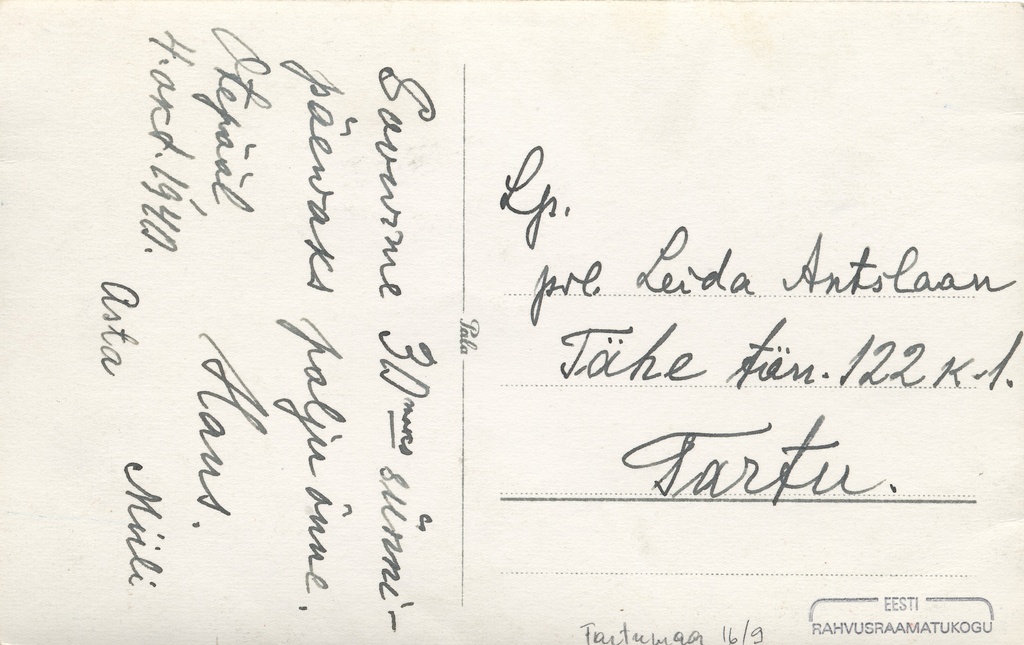 Soovime 30neks sünni-
päewaks palju õnne.
Otepääl Hans.
4. okt. 1940.
Asta Miili
Pala
Lp.
prl. Leida Antslaan
Tähe tän. 122 k-1.
Tartu.
Tartumaa 16/9
EESTI
RAHVUSRAAMATUKOGU